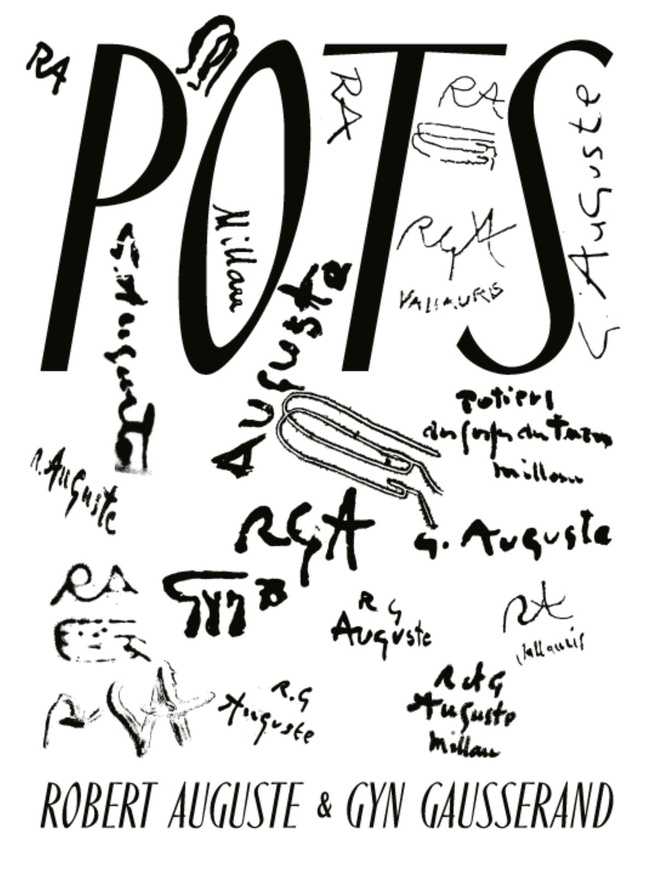 RA
POTS
RA
RA
G. Auguste
Millau
RGA
VALLAURIS
G. Auguste
Auguste
Potiers
des gorges du Tarn
Millau
R. Auguste
RGA
G. Auguste
RA
GYN
R G
Auguste
RA
Vallauris
RGA
R.G
Auguste
R et G
Auguste
Millau
ROBERT AUGUSTE & GYN GAUSSERAND